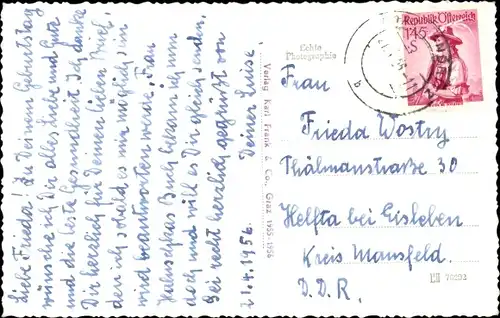 Liebe Frieda! Zu Deinem Geburtstag
wünsche ich Dir alles Liebe und Gute
und die beste Gesundheit. Ich danke
Dir herzlich für Deinen lieben Brief,
den ich sobald es mir möglich ist
wird beantworten werde. Frau
Buch bekam ich nun
doch und will es Dir gleich senden.
Sei recht herzlich gegrüßt von
Deiner Luise.
21.4.1956.
Echte
Photographie
Verlag Karl Frank & Co., Graz 1955-1956
Republik Österreich
1·45
S
Frau
Frieda Wostry
Thälmannstraße 30
Helfta bei Eisleben
Kreis Mansfeld.
D.D.R.